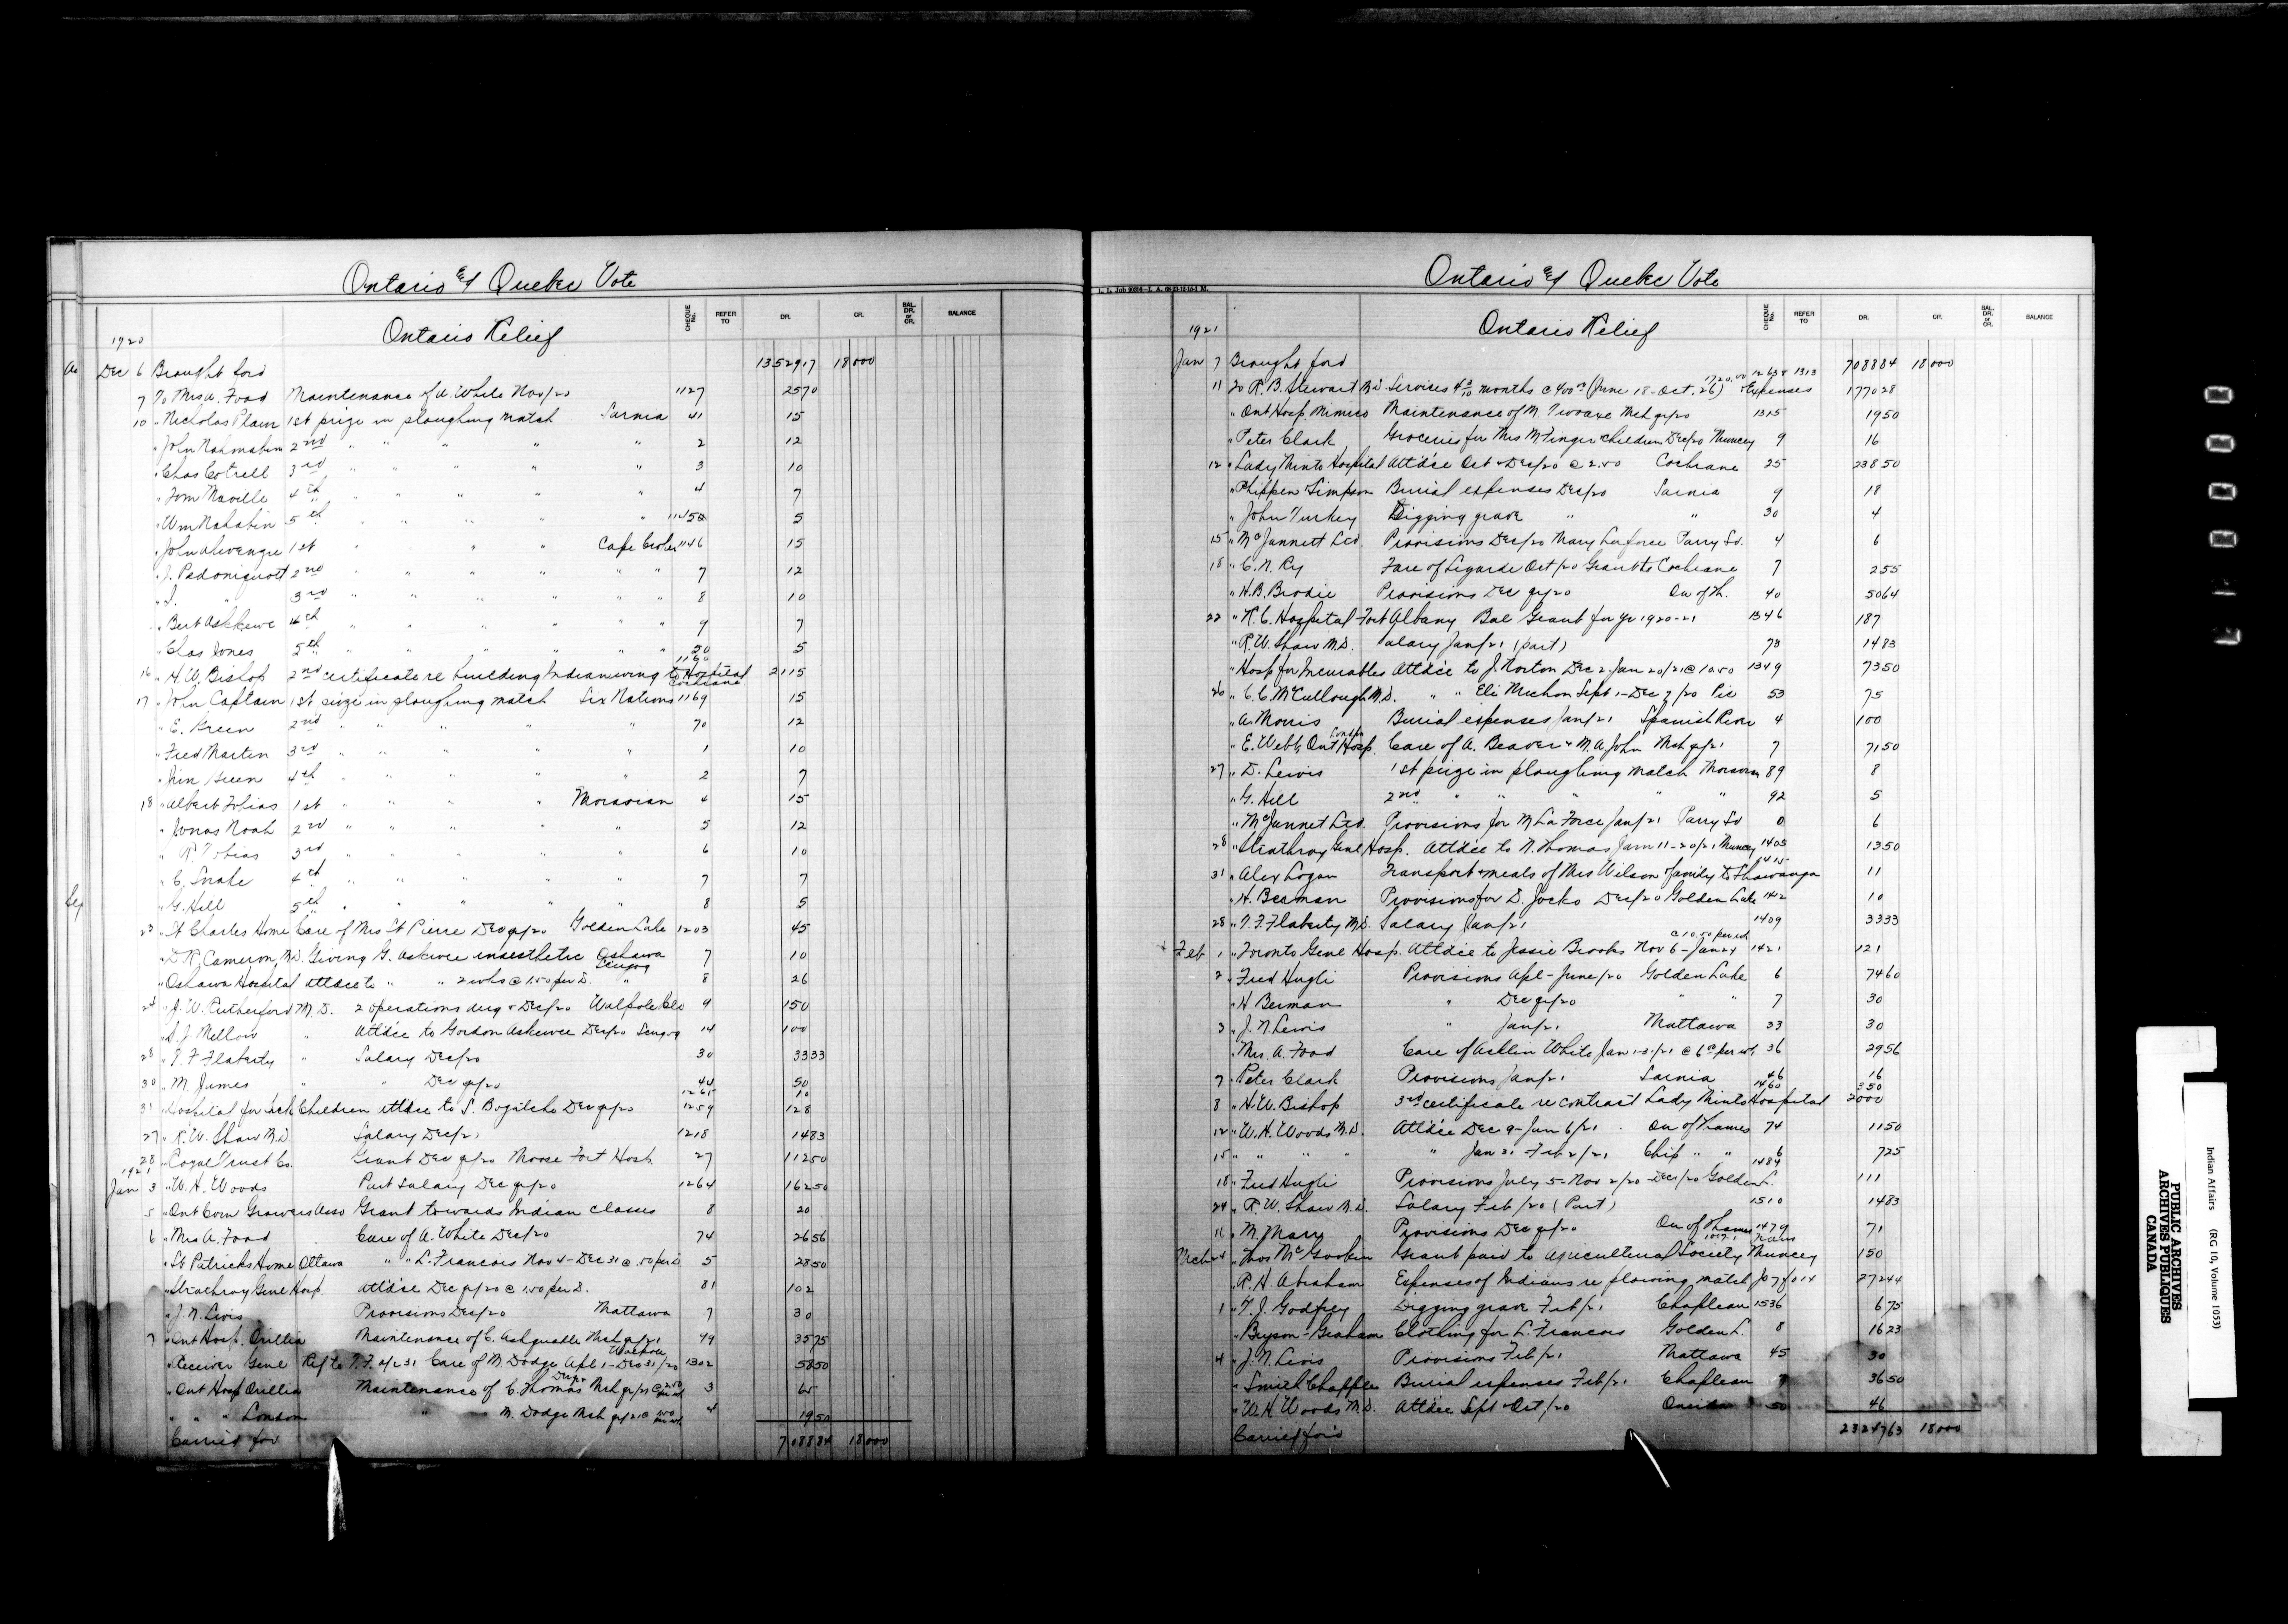 Ontario & Quebec Vote
1920 Ontario Relief CHEQUE No. REFER TO DR. CR. BAL. DR. or CR. BALANCE
Dec 6 Brought ford 1352917 18000
7 To Mrs A. Food Maintenance of A. White Nov/20 1127 2570
10 " Nicholas Plain 1st prize in ploughing match Sarnia 41 15
" John Nahmabin 2nd " " " " " 2 12
" Chas Cotrell 3rd " " " " " 3 10
" Tom Maville 4th " " " " " 4 7
" Wm Nahabin 5th " " " " " 1145 5
" John Akwenzie 1st " " " Cape Croker 1146 15
" J. Pedoniquott 2nd " " " " " 7 12
" J. " 3rd " " " " " 8 10
" Bert Ashkewe 4th " " " " " 9 7
" Chas Jones 5th " " " " " 50 5
16 " H.W. Bishop 2nd certificate re building Indian wing to Hospital Cochrane 1160 2115
17 " John Captain 1st prize in ploughing match Six Nations 1169 15
" E. Green 2nd " " " " " 70 12
" Fred Martin 3rd " " " " " 1 10
" Jim Green 4th " " " " " 2 7
18 " Albert Tobias 1st " " " " Moravian 4 15
" Jonas Noah 2nd " " " " " 5 12
" R. Tobias 3rd " " " " " 6 10
" C. Snake 4th " " " " " 7 7
" G. Hill 5th " " " " " 8 5
23 " St Charles Home Care of Mrs St Pierre Dec qr/20 Golden Lake 1203 45
" D.R. Cameron, M.D. Giving G. Askewe anaesthetic Oshawa Scugog 7 10
" Oshawa Hospital attdce to " " 2 wks @ 1.50 per D. " 8 26
24 " J.W. Rutherford M.D. 2 operations Aug & Dec/20 Walpole Isld 9 150
" S.J. Mellow " Attdce to Gordon Askewee Dec/20 Scugog 14 100
28 " T.F. Flaherty " Salary Dec/20 30 3333
30 " M. James " " Dec qr/20 44 50
1265 10
31 " Hospital for Sick Children attdce to S. Bogitche Dec qr/20 1259 128
27 " R.W. Shaw M.D. Salary Dec/21 1218 1483
28 " Royal Trust Co. Grant Dec qr/20 Moose Fort Hosp. 27 11250
1921
Jan 3 " W.H. Woods Part Salary Dec qr/20 1264 16250
5 " Ont Corn Growers Asso Grant towards Indian classes 8 20
6 " Mrs A. Food Care of A. White Dec/20 74 2656
" St Patricks Home Ottawa " " L. Francois Nov 4 - Dec 31 @ .50 per D 5 2850
" Strathroy Genl Hosp. Attdce Dec qr/20 @ 1.50 per D. 81 102
" J.N. Levis Provisions Dec/20 Mattawa 7 30
7 " Ont Hosp. Orillia Maintenance of C. Ashquabe Mch qr/21 99 3575
" Receiver Genl Ref to T.F. a/c 31 Care of M. Dodge Apl 1 - Dec 31/20 1302 5850
" Ont Hosp Orillia Maintenance of C. Thomas Mch qr/21 3 65
" " " London " M. Dodge Mch qr/21 4 1950
Carried for 708884 18000
Ontario & Quebec Vote
1921 Ontario Relief CHEQUE No. REFER TO DR. CR. BAL. DR. or CR. BALANCE
Jan 7 Brought ford 708884 18000
11 To R.B. Stewart M.D. Services 4 3/10 months @ 400.00 (June 18 - Oct. 26) 1720.00 & Expenses 1263 & 1313 177028
" Ont Hosp. Mimico Maintenance of M. Mch qr/20 1315 1950
" Peter Clark Groceries for Mrs M. Finger children Dec/20 Muncey 9 16
12 " Lady Minto Hospital Attdce Oct - Dec/20 @ 2.50 Cochrane 25 23850
" Phippen & Simpson Burial expenses Dec/20 Sarnia 9 18
" John Turkey Digging grave " " 30 4
15 " McJannett Ltd. Provisions Dec/20 Mary Laforce Parry Sd. 4 6
18 " C.N. Ry Fare of Ligarde Oct/20 Grant to Cochrane 7 255
" H.B. Brodie Provisions Dec qr/20 On of Th. 40 5064
22 " R.C. Hospital Fort Albany Bal Grant for yr 1920-21 1346 187
" R.W. Shaw M.D. Salary Jan/21 (part) 73 1483
" Hosp for Incurables Attdce to J. Norton Dec 2-Jan 20/21 @ 10.50 1349 7350
26 " C.C. McCullough M.D. " " Eli Michon Sept 1 - Dec 7/20 Pic 53 75
" A. Morris Burial expenses Jan/21 Spanish River 4 100
" E. Webb, Ont Hosp. London Care of A. Beaver & M.A. John Mch qr/21 7 7150
27 " D. Lewis 1st prize in ploughing match Moravian 89 8
" G. Hill 2nd " " " " 92 5
" McJannet Ltd. Provisions for M LaForce Jan/21 Parry Sd 0 6
28 " Strathroy Genl Hosp. Attdce to N. Thomas Jan 11-20/21 Muncey 1405 1350
31 " Alex Logan Transport & meals of Mrs Wilson & family to Shawanaga 1415 11
" H. Beaman Provisions for D. Jocko Dec/20 Golden Lake 1402 10
28 " T.F. Flaherty M.D. Salary Jan/21 1409 3333
Feb 1 " Toronto Genl Hosp. Attdce to Jessie Brooks Nov 6 - Jan 24 @ 10.50 per wk 1421 121
2 " Fred Hugli Provisions Apl - June/20 Golden Lake 6 7460
" H Berman " Dec qr/20 " " 7 30
3 " J.N. Levis " Jan/21 Mattawa 33 30
" Mrs. A. Food Care of White Jan 1-31/21 @ 6.00 per wk 36 2956
7 " Peter Clark Provisions Jan/21 Sarnia 46 16
1460 350
8 " H.W. Bishop 3rd certificate re contract Lady Minto Hospital 2000
12 " W.H. Woods M.D. Attdce Dec 9 - Jan 6/21 On of Thames 74 1150
15 " " " " " Jan 31 - Feb 2/21 Chip " " 6 725
18 " Fred Hugli Provisions July 5 - Nov 2/20 - Dec/20 Golden L. 1484 111
24 " R.W. Shaw M.D. Salary Feb/20 (Part) 1510 1483
16 " M. Marr Provisions Dec qr/20 On of Thames 1479 71
Mch 4 " Thos McGookin Grant paid to Agricultural Society Muncey 150
" R.H. Abraham Expenses of Indians re plowing match Jo 7 fo 14 27244
1 " T.J. Godfrey Digging grave Feb/21 Chapleau 1536 675
" Bryson-Graham Clothing for L. Francois Golden L. 8 1623
4 " J.N. Levis Provisions Feb/21 Mattawa 45 30
" Smith Chapple Burial expenses Feb/21 Chapleau 7 3650
" W.H. Woods M.D. Attdce Sept - Oct/20 Oneida 50 46
Carried for'd 2324763 18000
Indian Affairs (RG 10, Volume 1053)
PUBLIC ARCHIVES
ARCHIVES PUBLIQUES
CANADA